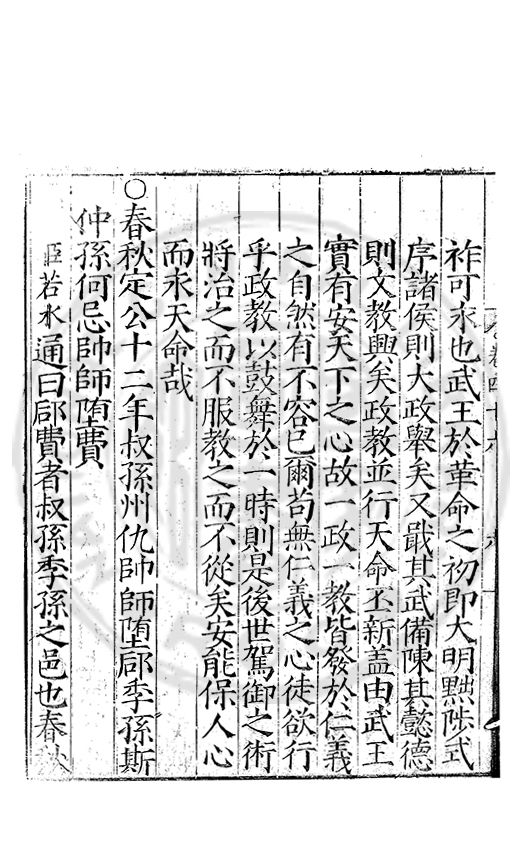 卷四十六
六
祚可永也武王於革命之初即大明黜陟式
序諸侯則大政舉矣又戢其武備陳其懿德
則文教興矣政教並行天命丕新蓋由武王
實有安天下之心故一政一教皆發於仁義
之自然有不容已爾苟無仁義之心徒欲行
乎政教以鼓舞於一時則是後世駕御之術
將治之而不服教之而不從矣安能保人心
而永天命哉
○春秋定公十二年叔孫州仇帥師墮郈季孫斯
仲孫何忌帥師墮費
臣若水通曰郈費者叔孫季孫之邑也春秋